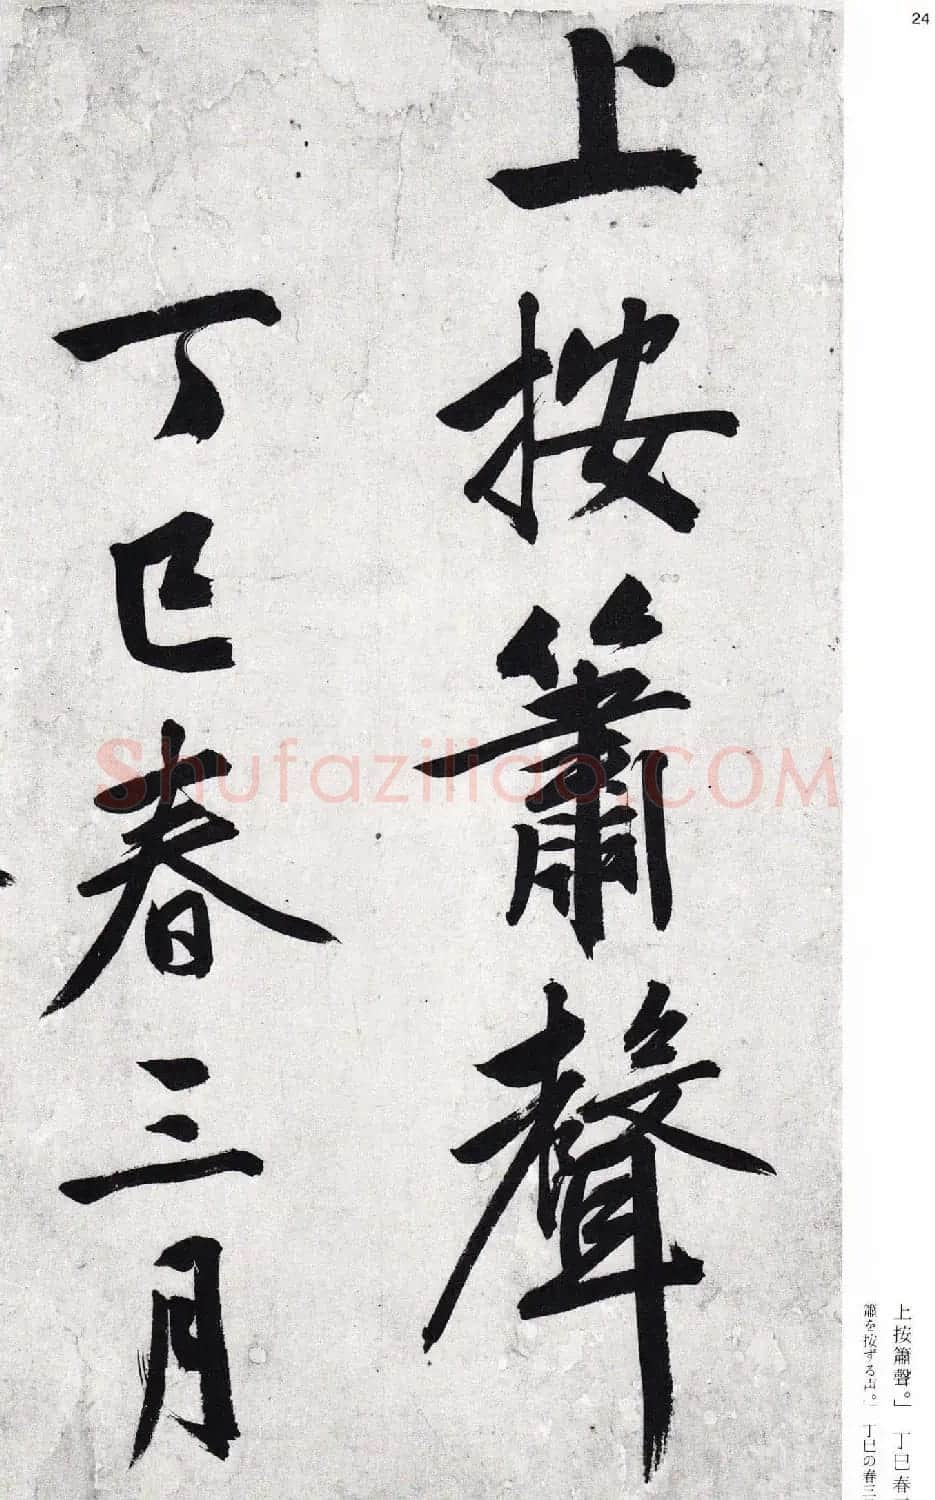 24
上按簫聲
丁巳春三月
上按簫聲。」 丁巳春
簫を按ずる声。」 丁巳の春三
Shufaziliao.COM